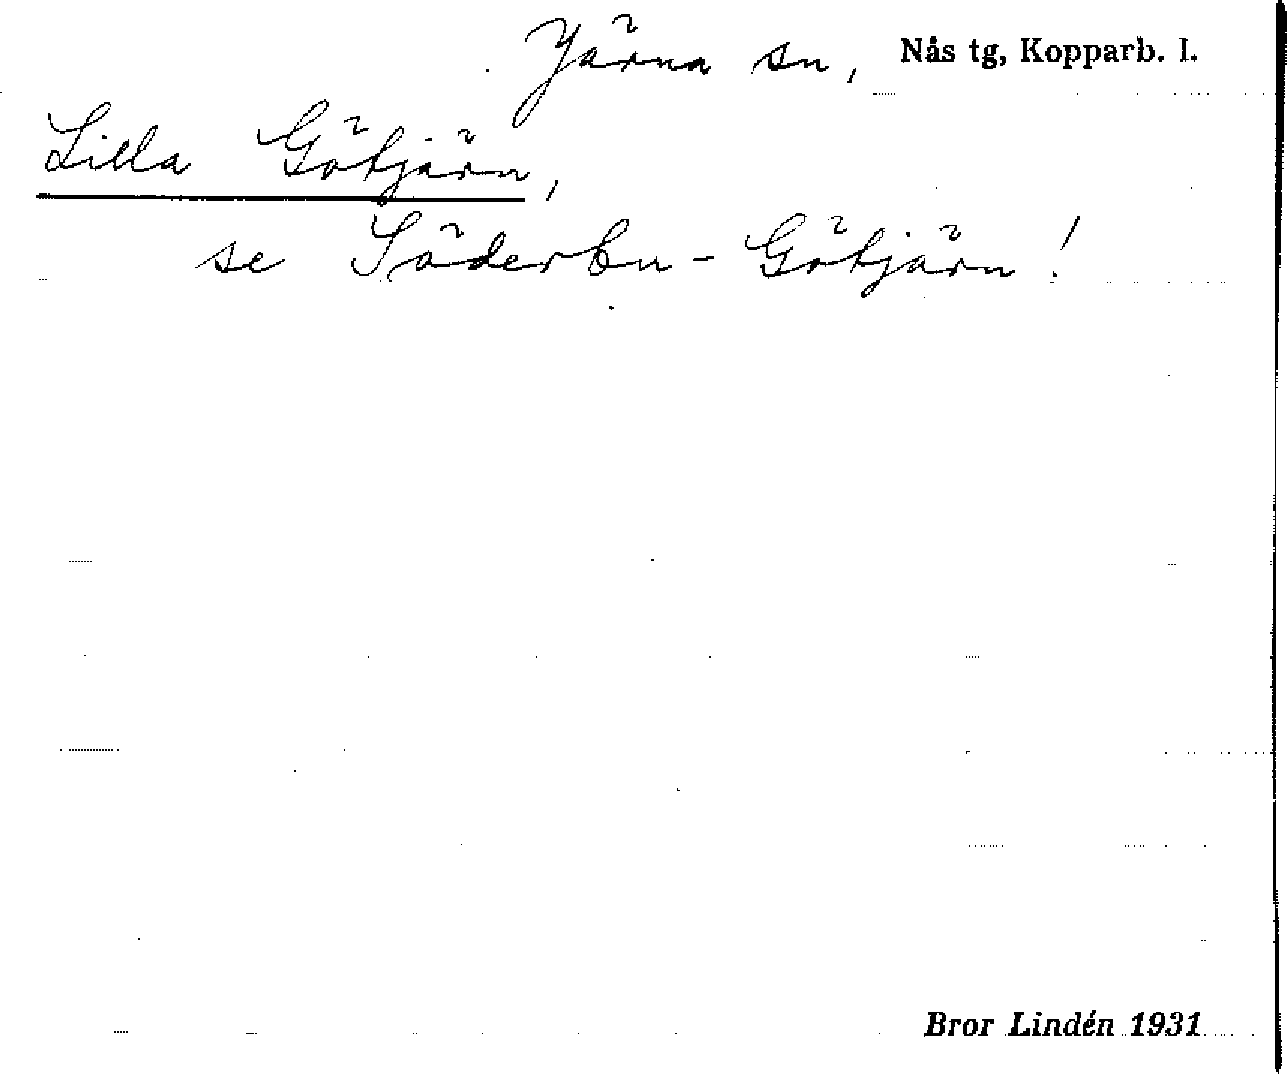 Järna sn, Nås tg, Kopparb. l.
Lilla Götjärn,
se Söderbu-Götjärn!
Bror Lindén 1931